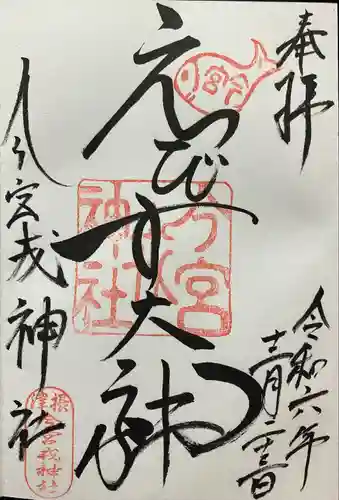 奉拝
令和六年
十二月二十三日
えびす大神
今宮戎神社
今宮
今宮戎神社
摂津
今宮戎神社